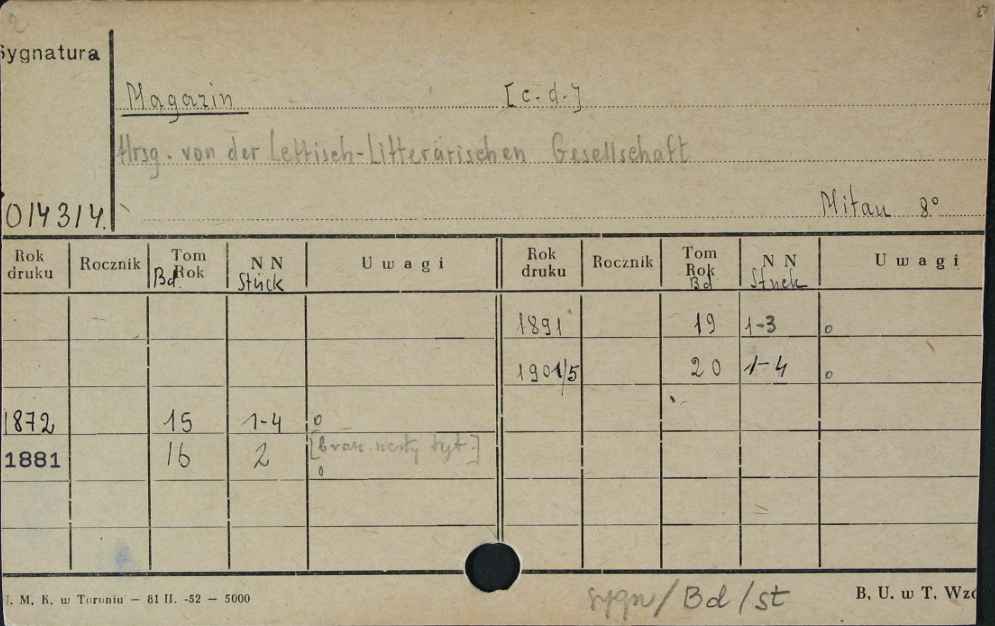 2
Sygnatura
Magazin [c.d.]
Hrsg. von der Lettisch-Litterärischen Gesellschaft
014314.
Mitau 8°
Rok druku Rocznik Tom Rok Bd. NN Stück Uwagi Rok druku Rocznik Tom Rok Bd NN Stück Uwagi
1891 19 1-3 o
1901/5 20 1-4 o
1872 15 1-4 o
1881 16 2 [brak karty tyt.]
o
U. M. K. w Toruniu — 81 II. -52 — 5000
sygn/Bd/st
B. U. w T. Wzó